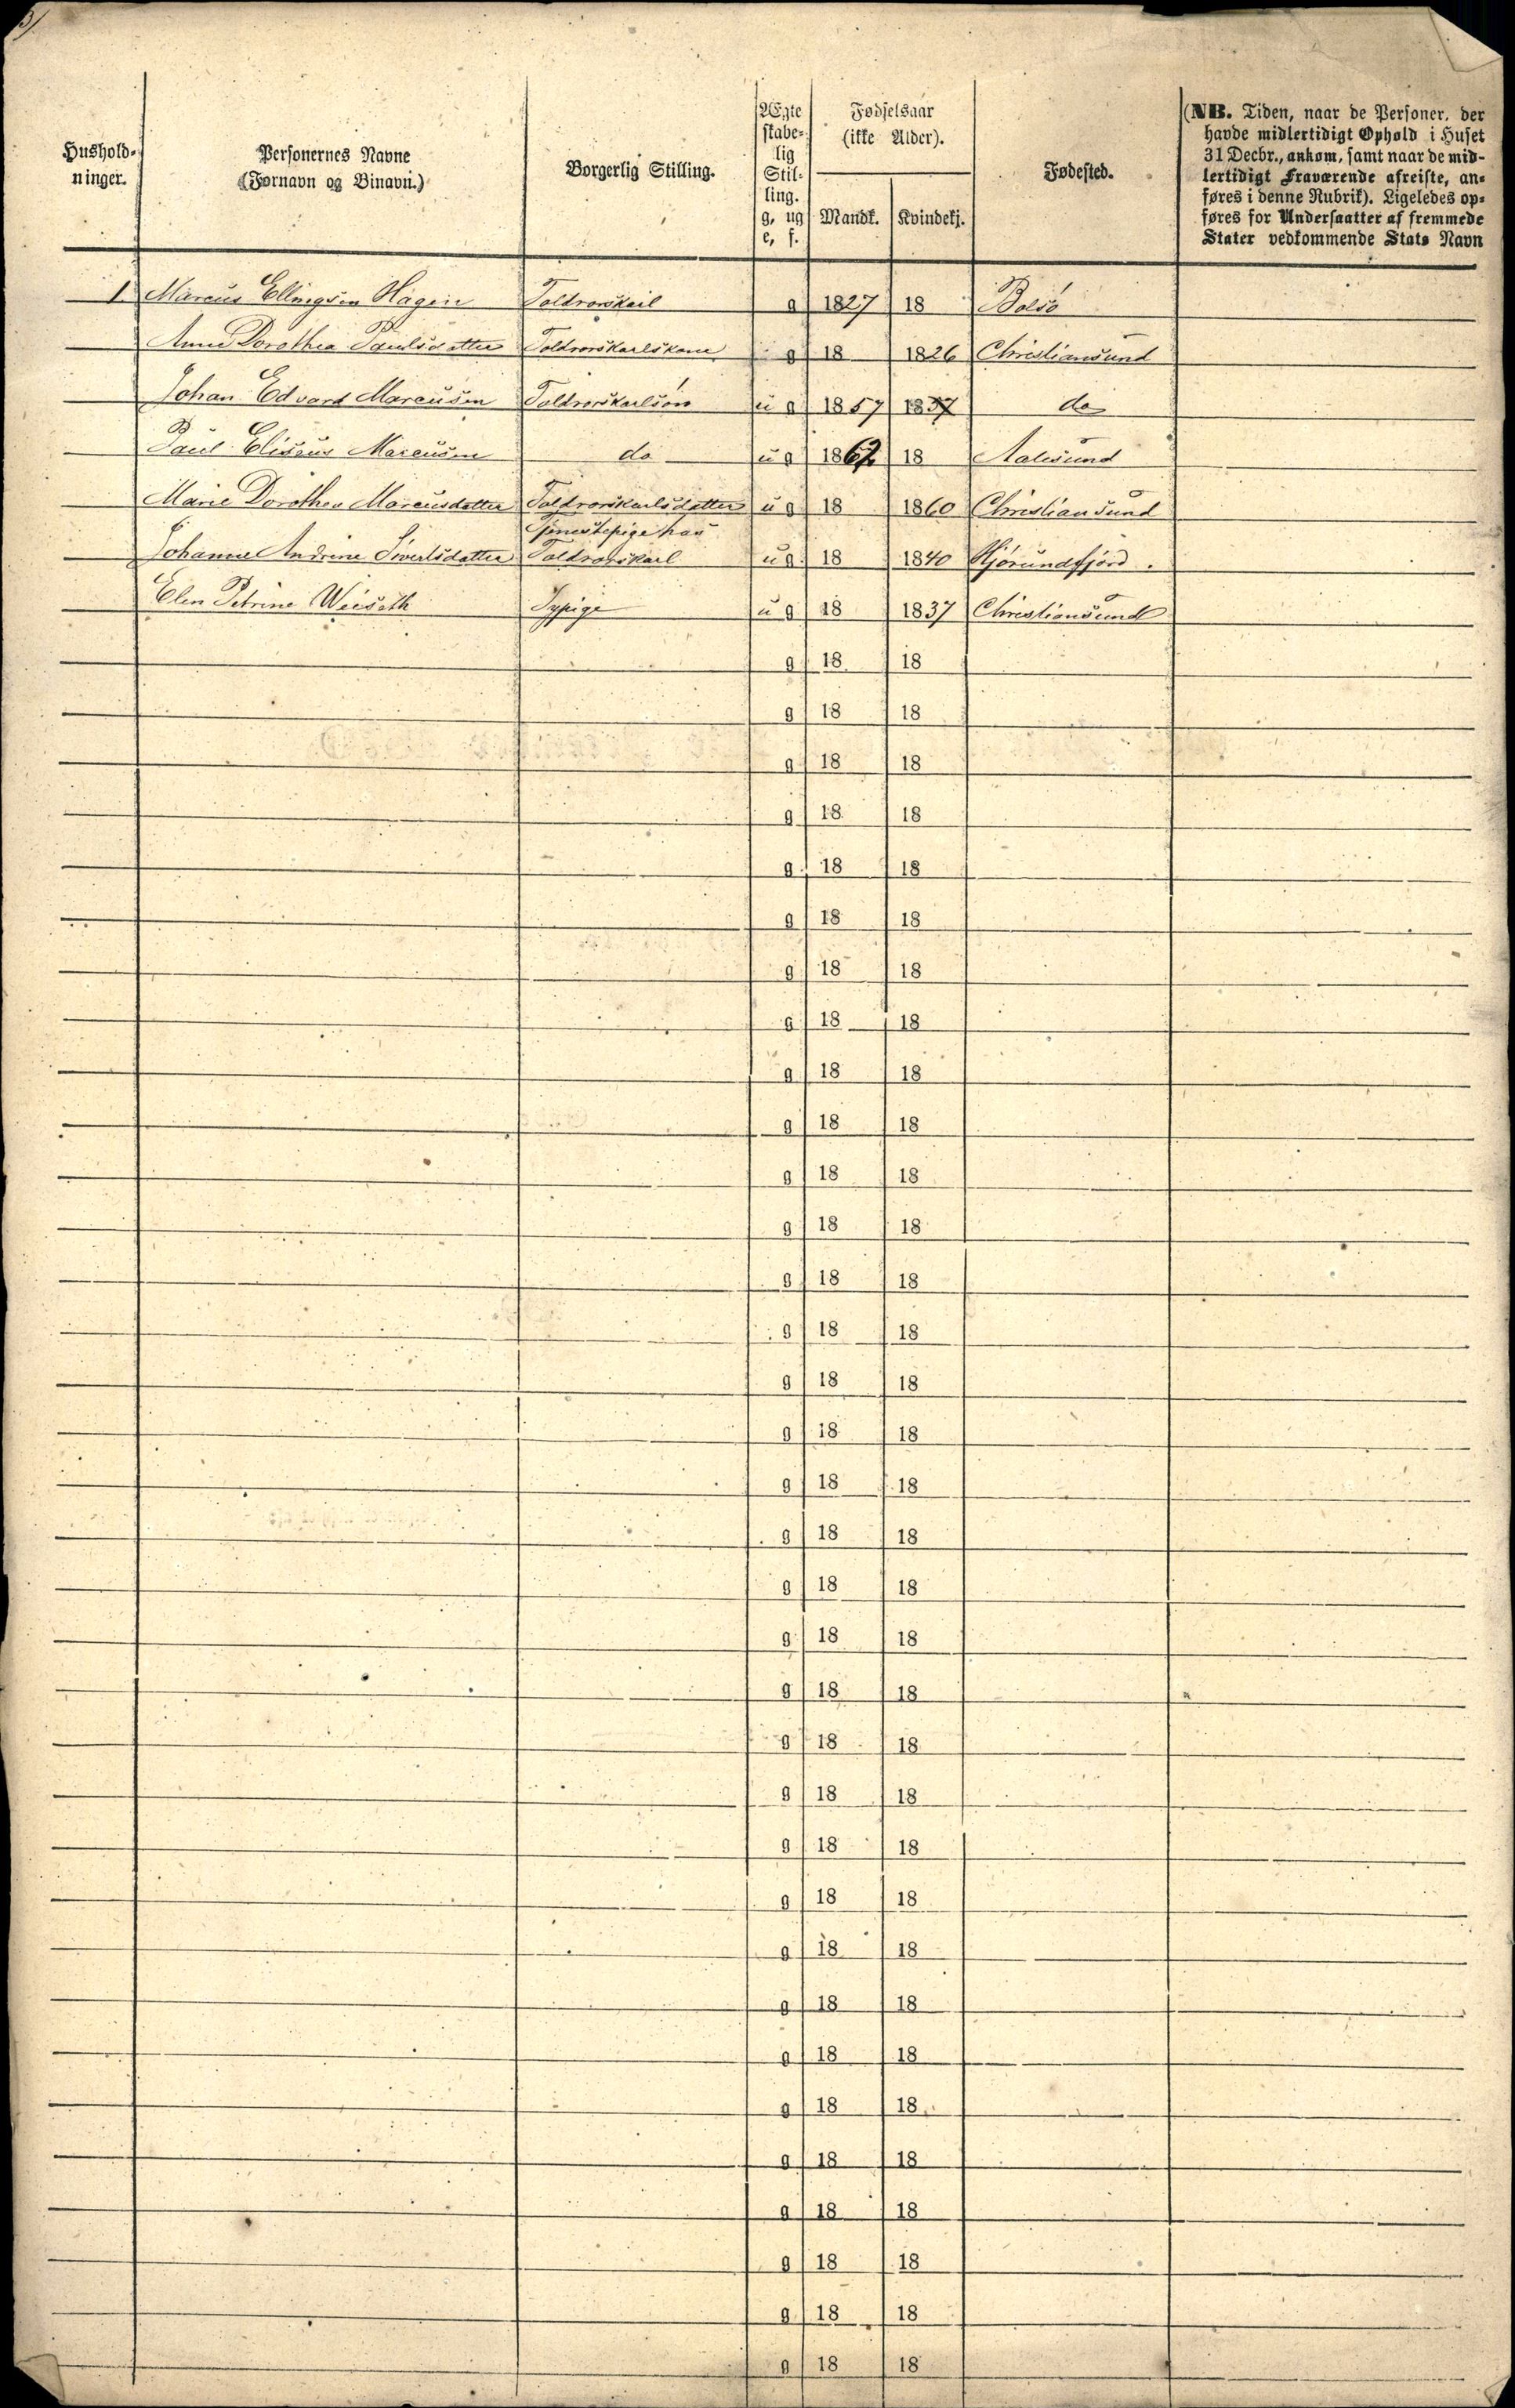 3/
Hushold-
ninger.
Personernes Navne
(Fornavn og Binavn.)
Borgerlig Stilling.
Ægte
skabe-
lig
Stil-
ling.
g, ug
e, f.
Fødselsaar
(ikke Alder).
Mandk. Kvindekj.
Fødested.
(NB. Tiden, naar de Personer, der
havde midlertidigt Ophold i Huset
31 Decbr., ankom, samt naar de mid-
lertidigt Fraværende afreiste, an-
føres i denne Rubrik). Ligeledes op-
føres for Undersaatter af fremmede
Stater vedkommende Stats Navn
1 Marcus Ellingsen Hagen Toldrorskarl g 1827 18 Bolsö
Anne Dorothea Paulsdatter Toldrorskarlskone g 18 1826 Christiansund
Johan Edvard Marcusen Toldrorskarlsön u g 1857 1837 do
Paul Eliseus Marcusen do u g 1862 18 Aalesund
Marie Dorothea Marcusdatter Toldrorskarlsdatter u g 18 1860 Christiansund
Tjenestepige hos
Johanne Andrine Sivertsdatter Toldrorskarl u g 18 1840 Hjörundfjörd.
Elen Petrine Weiseth Sypige u g 18 1837 Christiansund
g 18 18
g 18 18
g 18 18
g 18 18
g 18 18
g 18 18
g 18 18
g 18 18
g 18 18
g 18 18
g 18 18
g 18 18
g 18 18
g 18 18
g 18 18
g 18 18
g 18 18
g 18 18
g 18 18
g 18 18
g 18 18
g 18 18
g 18 18
g 18 18
g 18 18
g 18 18
g 18 18
g 18 18
g 18 18
g 18 18
g 18 18
g 18 18
g 18 18
g 18 18